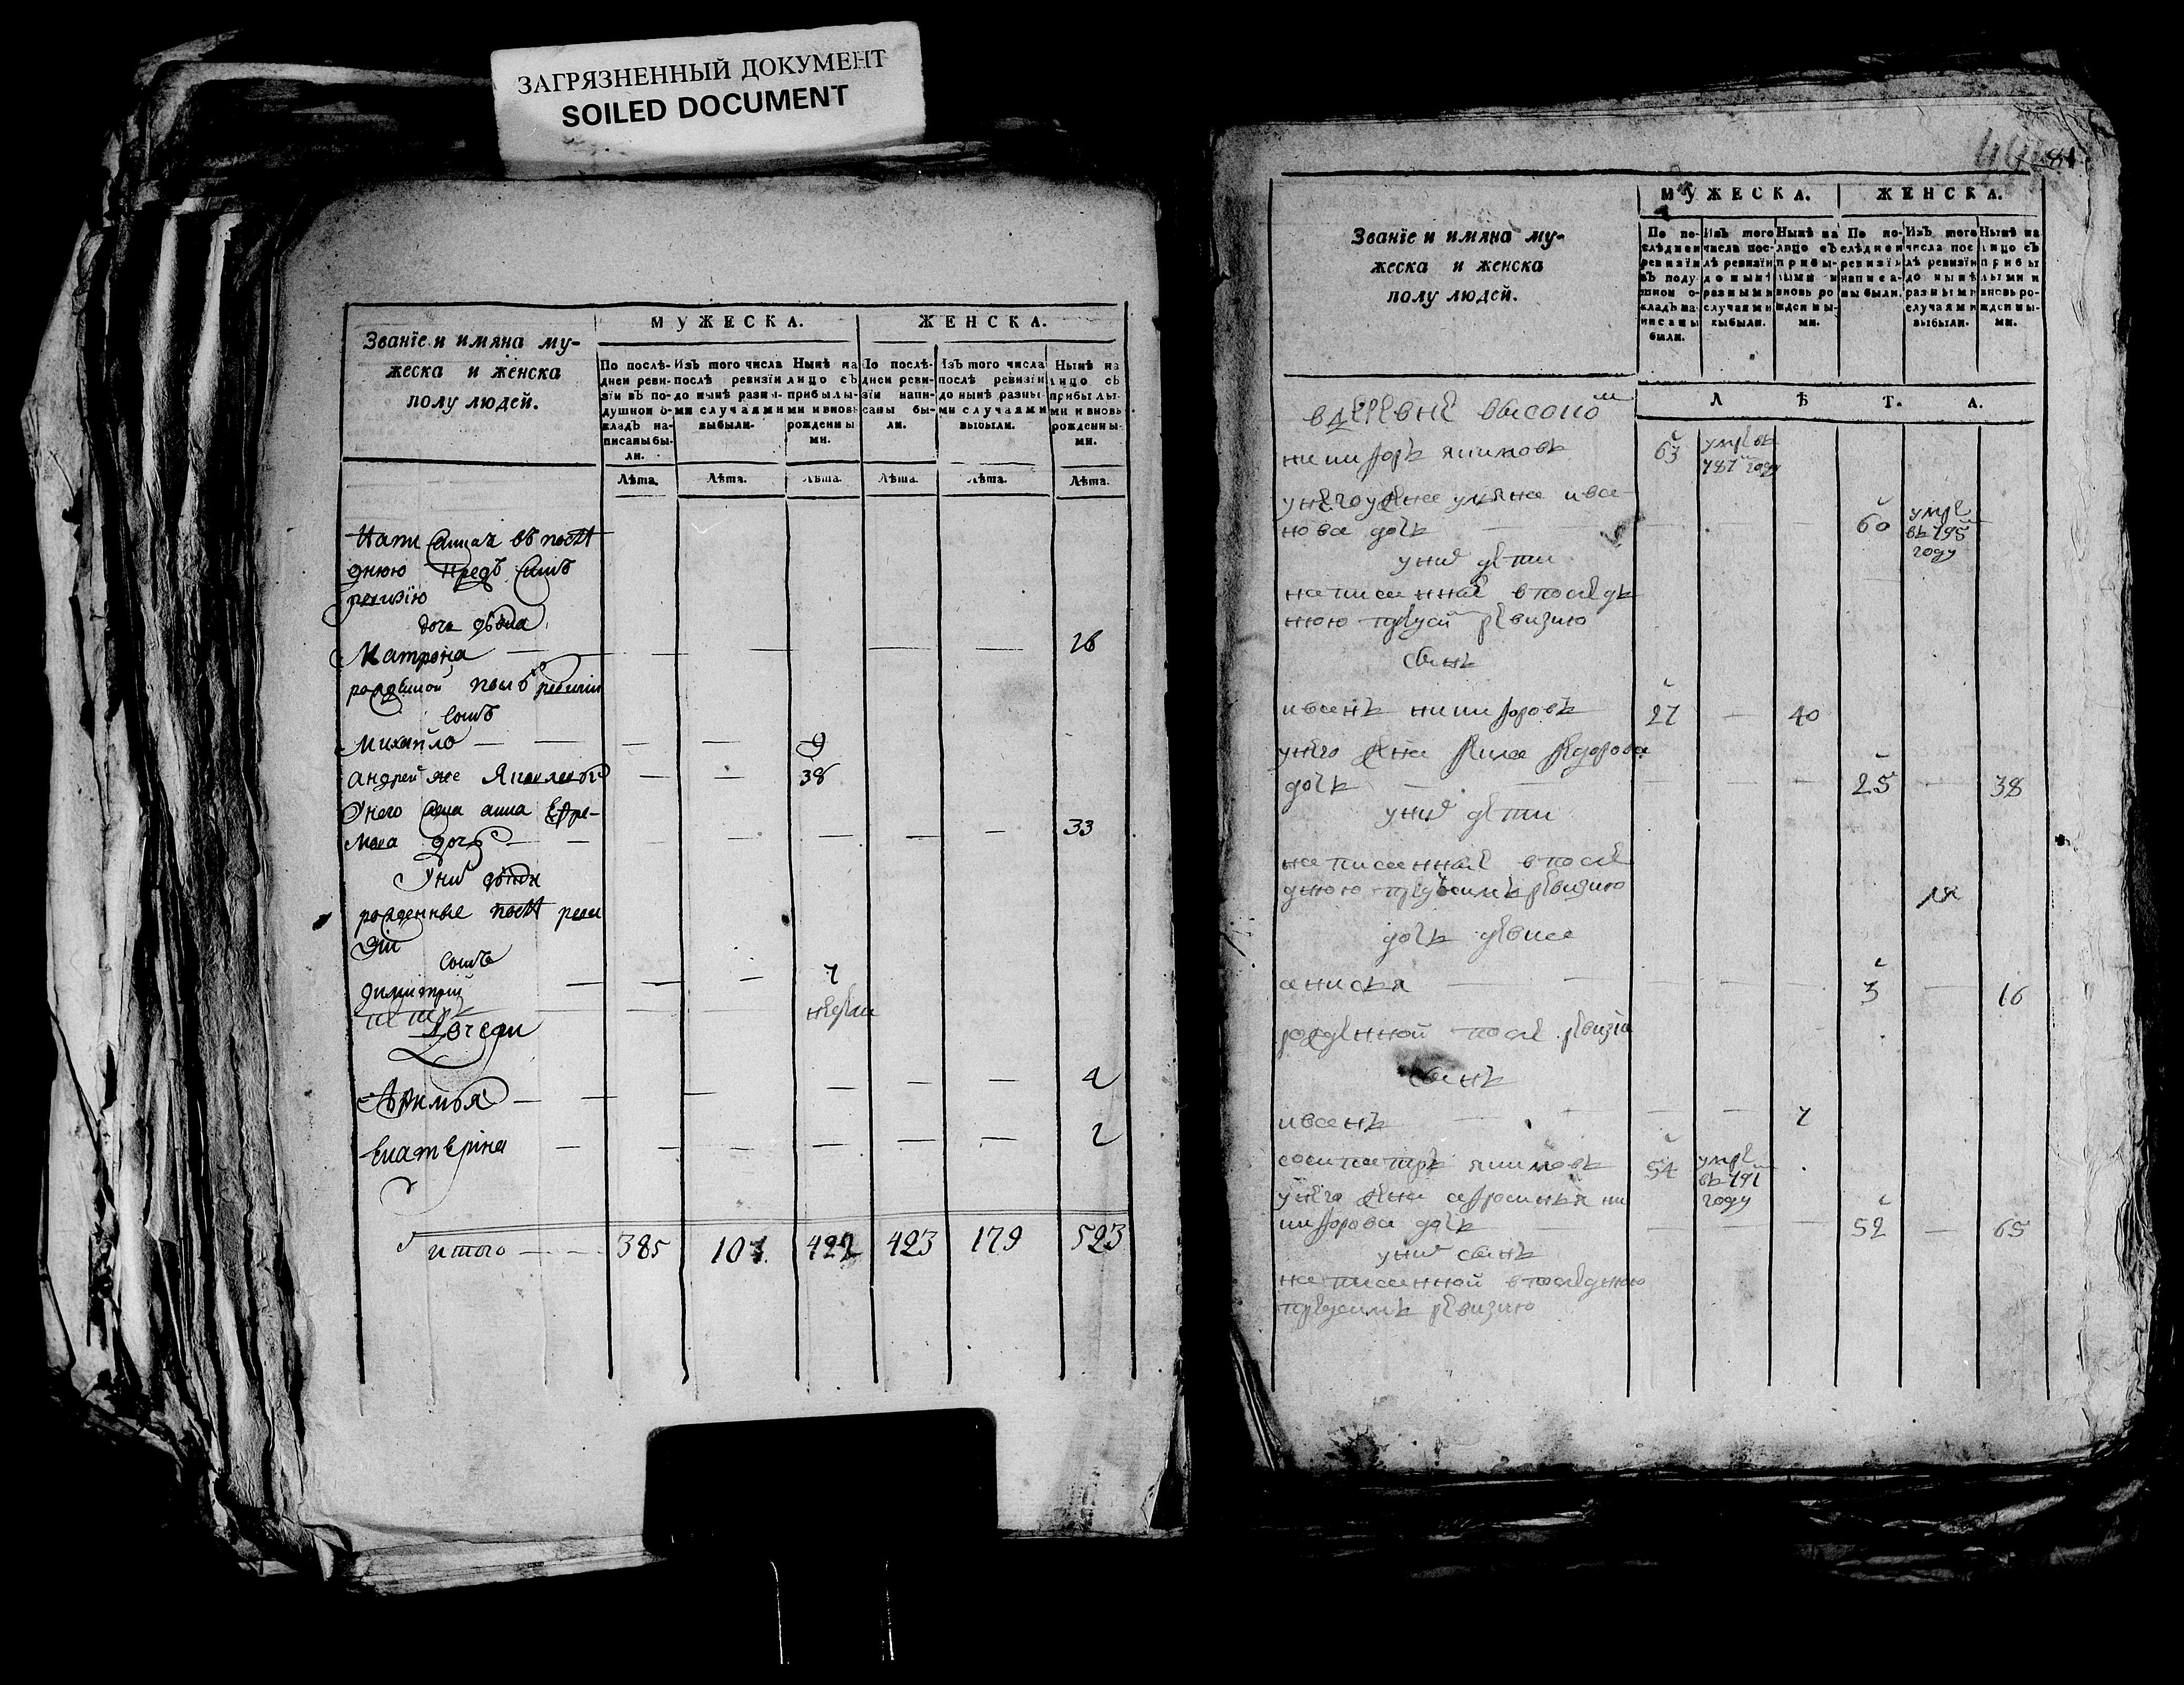 ЗАГРЯЗНЕННЫЙ ДОКУМЕНТ
SOILED DOCUMENT
Званїе и имяна му-
жеска и женска
полу людей.
МУЖЕСКА.
ЖЕНСКА.
По послѣ-
дней реви-
зїи въ по-
душной о-
кладъ на-
писаны бы-
ли.
Изъ того числа
послѣ ревизїи
до нынѣ разны-
ми случаями
выбыли.
Нынѣ на
лицо съ
прибылы-
ми и вновь
рожденны
ми.
По послѣ-
дней реви-
зїи напи-
саны бы-
ли.
Изъ того числа
послѣ ревизїи
до нынѣ разны
ми случаями
выбыли.
Нынѣ на
лицо съ
прибылы-
ми и вновь
рожденны-
ми.
Лѣта. Лѣта. Лѣта. Лѣта. Лѣта. Лѣта.
днюю предъ симъ
ревизїю
дочь
Матрона 16
ревизїи
сынъ
Михайло 9
андрей же 38
У него жена анна Ефре-
мова дочь 33
У них дѣти
рожденные послѣ реви
зїи
сынъ
димитрїй 7
петръ недели
Дочери
4
Екатерїна 2
итого 385 107 422 423 179 523
81
Званїе и имяна му-
жеска и женска
полу людей.
МУЖЕСКА.
ЖЕНСКА.
По по-
слѣдней
ревизїи
въ поду-
шной о-
кладъ на-
писаны
были.
Изъ того
числа пос-
лѣ ревизїи
до нынѣ
разными
случаями
выбыли.
Нынѣ на
лицо съ
прибы-
лыми и
вновь ро
жденны-
ми.
По по-
слѣдней
ревизїи
написа-
ны были.
Изъ того
числа пос
лѣ ревизїи
до нынѣ
разными
случаями
выбыли.
Нынѣ на
лицо съ
прибы
лыми и
вновь ро-
жденны-
ми.
ЛѢТА.
в деревне высокой
никифоръ якимовъ 63 умре въ
787 году
у него жена ульяна ива-
нова дочь 60 умре
въ 795
году
у них дети
написанные в последь
нюю пред сим ревизию
сынъ
иванъ никифоровъ 27 — 40
у него жена Федорова
дочь 25 — 38
у них дети
написанная в после
днюю пред симъ ревизию
дочь девка
анисья 3 — 16
рожденной после ревизїи
сынъ
иванъ 7
сосипатръ якимовъ 54 умре
въ 791
году
у него жена афросинья ни
кифорова дочь 52 — 65
у них сынъ
написанной в последнюю
пред симъ ревизию